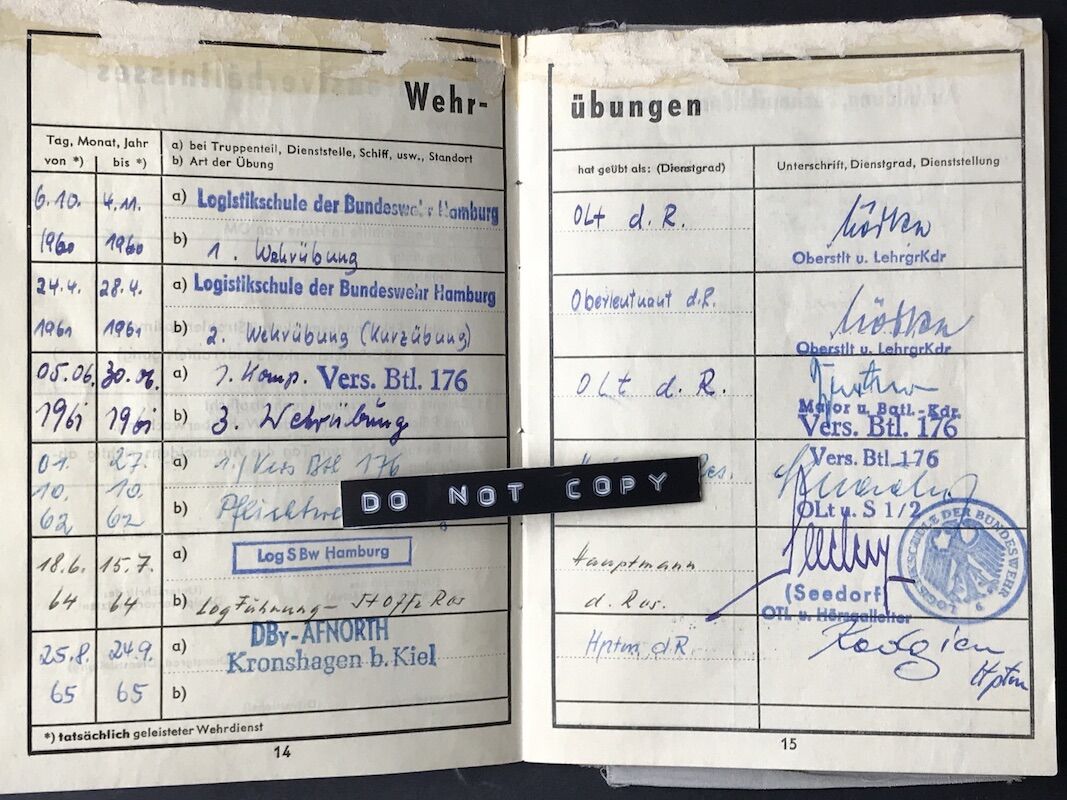 Wehr-
Tag, Monat, Jahr
von *) bis *)
a) bei Truppenteil, Dienststelle, Schiff, usw., Standort
b) Art der Übung
6.10. 4.11. a) Logistikschule der Bundeswehr Hamburg
1960 1960 b) 1. Wehrübung
24.4. 28.4. a) Logistikschule der Bundeswehr Hamburg
1961 1961 b) 2. Wehrübung (Kurzübung)
05.06. 30.06. a) 1. Komp. Vers. Btl. 176
1961 1961 b) 3. Wehrübung
01. 27. a) 1./Vers Btl 176
10. 10.
62 62 b)
18.6. 15.7. a) Log S Bw Hamburg
64 64 b) Log Führung - StOffz Res
25.8. 24.9. a) DBv-AFNORTH
Kronshagen b. Kiel
65 65 b)
*) tatsächlich geleisteter Wehrdienst
14
DO NOT COPY
übungen
hat geübt als: (Dienstgrad)
Unterschrift, Dienstgrad, Dienststellung
OLt d. R.
Oberstlt u. LehrgrKdr
Oberleutnant d.R.
Oberstlt u. LehrgrKdr
OLt d. R.
Major u. Batl.-Kdr.
Vers. Btl. 176
Res.
Vers. Btl. 176
OLt u. S 1/2
Hauptmann
d. Res.
(Seedorf)
OTL u. Hörsaalleiter
LOGISTIKSCHULE DER BUNDESWEHR
Hptm d.R.
Hptm
15